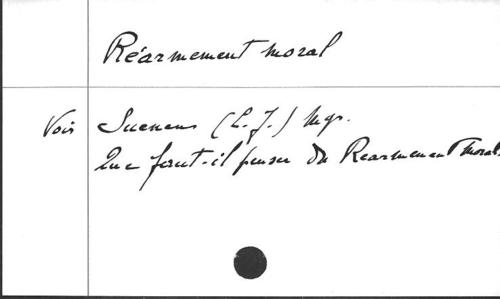 Réarmement moral
Voir Suenens (L.J.) Mgr.
Que faut-il penser du Réarmement Moral.